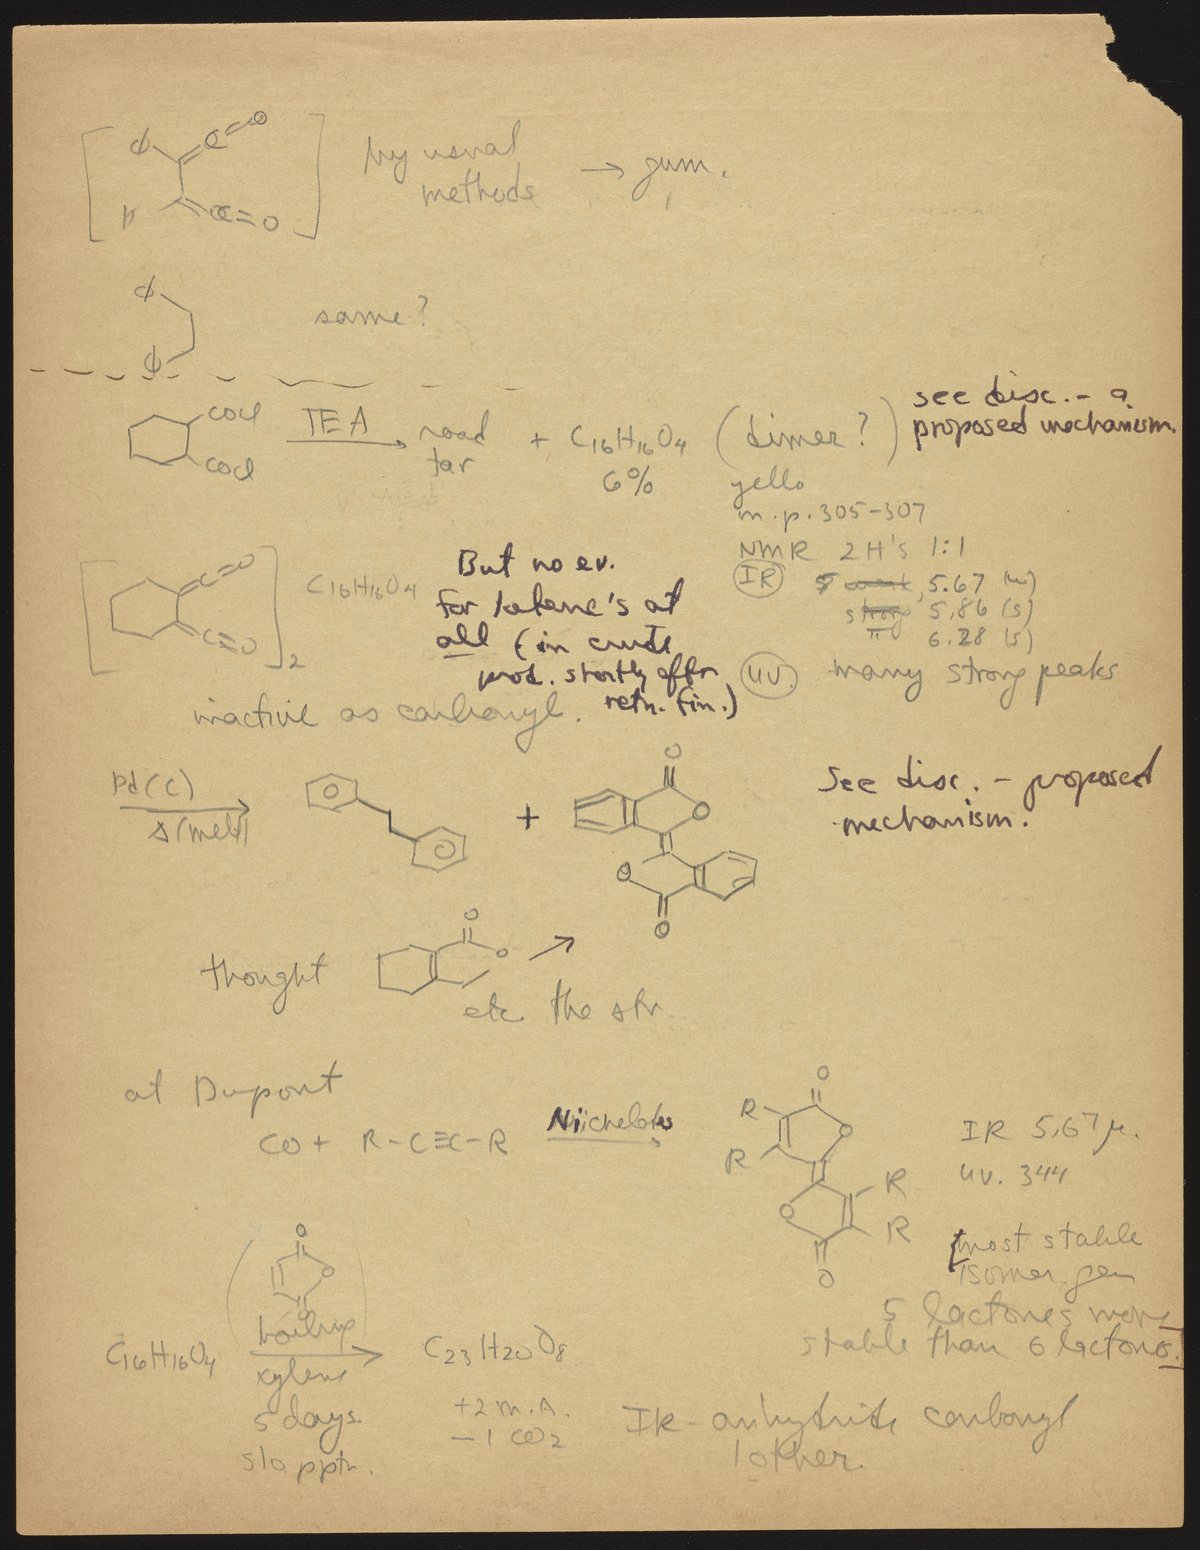 Φ C=O
by usual
methods → gum.
Φ C=O
Φ
same?
Φ
see disc. - a
proposed mechanism.
COCl
COCl
TEA
road
tar
+ C16H16O4 (dimer?)
6%
yello
m.p. 305-307
NMR 2H's 1:1
IR 5.67 (w)
strong 5.86 (s)
" 6.28 (s)
UV. many strong peaks
C=O
C=O
2
C16H16O4
But no ev.
for ketene's at
all (in crude
prod. shortly after
retn. fin.)
inactive as carbonyl.
Pd(C)
Δ (melt)
+
O
O
O
O
See disc. - proposed
mechanism.
thought
O
O
etc the str.
at Dupont
CO + R-C≡C-R
Ni chelates
O
R
O
R
R
O
R
O
IR 5.67 μ.
UV. 344
[most stable
isomer. gen
5 lactones more
stable than 6 lactone.]
O
O
O
C16H16O4
boiling
xylene
5 days.
slo pptn.
C23H20O8
+2 M.A.
-1 CO2
IR - anhydride carbonyl
1 other.